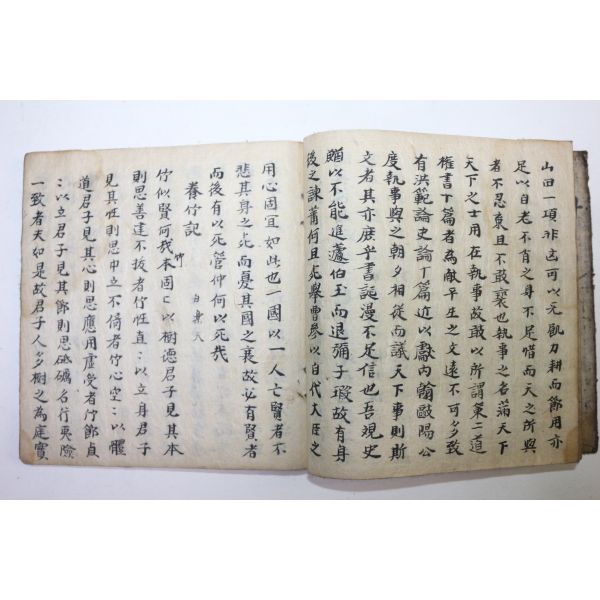 山田一頃非凶歲可以无飢力耕而節用亦
足以自老不肖之身不足惜而天之所與
者不忍棄且不敢褻也執事之名滿天下
天下之士用在執事故敢以所謂策二道
權書十篇者為獻平生之文遠不可多致
有洪範論史論十篇近以獻內翰歐陽公
度執事與之朝夕相從而議天下事則斯
文者其亦庶乎書誕漫不足信也吾觀史
鰌以不能進蘧伯玉而退彌子瑕故有身
後之諫蕭何且死擧曹參以自代大臣之
用心固宜如此也一國以一人亡賢者不
悲其身之死而憂其國之衰故必有賢者
而後有以死管仲何以死哉
養竹記
白樂天
竹似賢何哉竹本固〻以樹德君子見其本
則思善建不拔者竹性直〻以立身君子
見其性則思中立不倚者竹心空〻以軆
道君子見其心則思應用虛受者竹節貞
〻以立君子見其節則思砥礪名行夷險
一致者夫如是故君子人多樹之為庭實